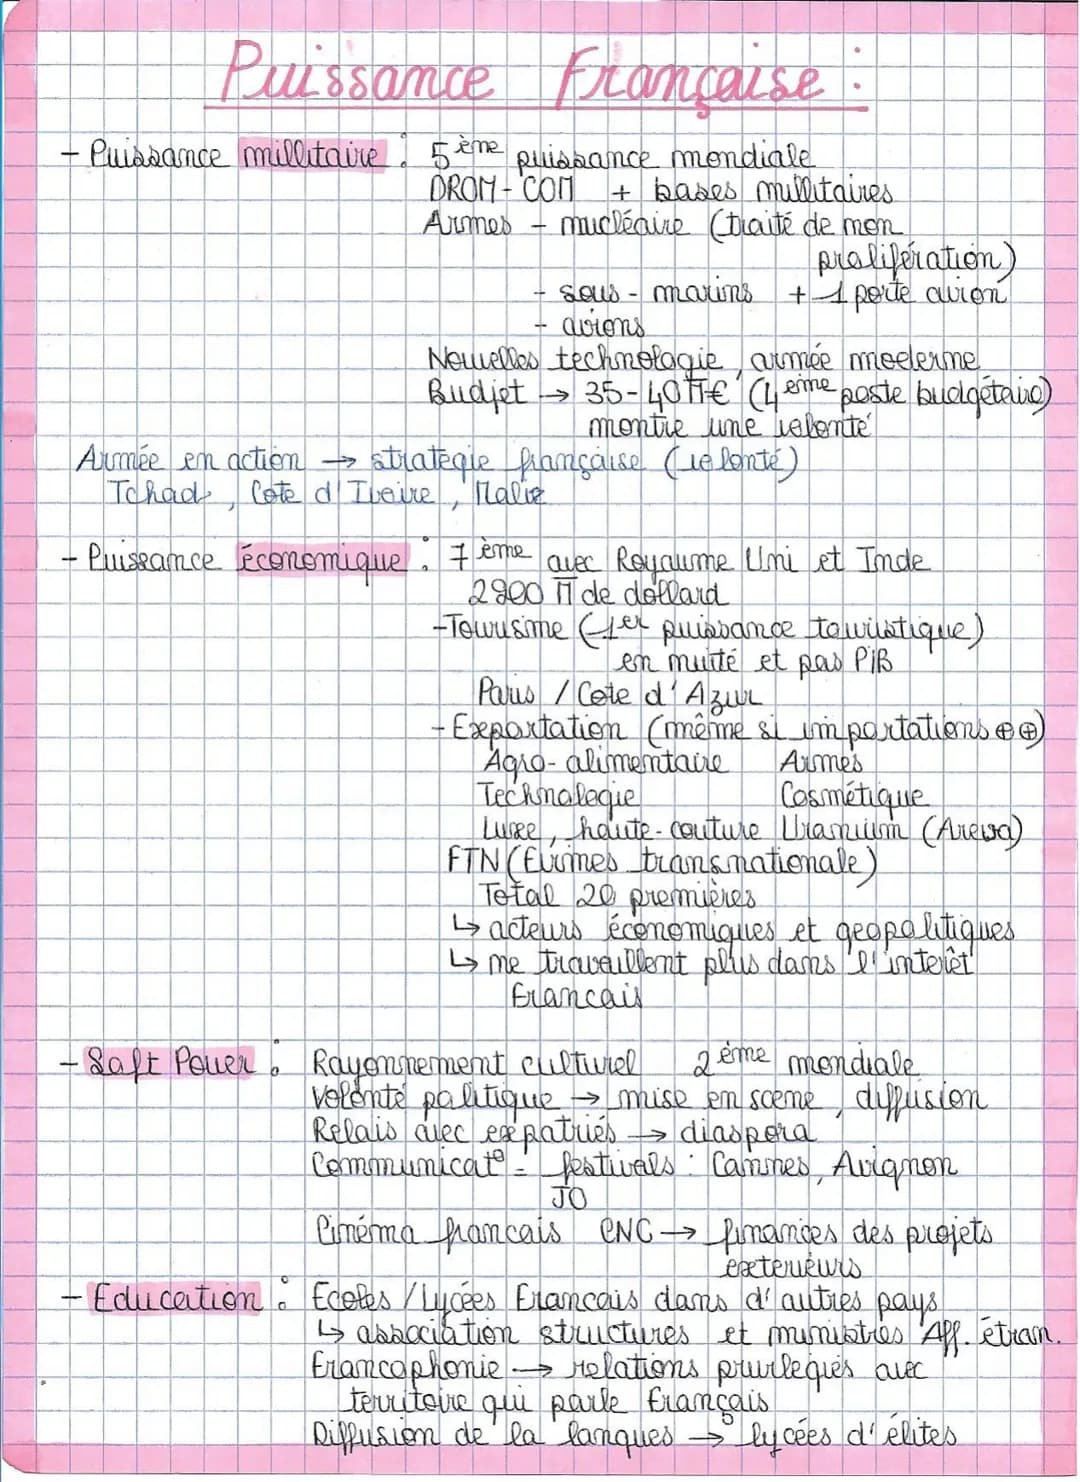 Puissance Française :
- Puissance millitaire : 5ème puissance mondiale
DROM-COM + bases millitaires
Armes - nucléaire (traité de non
prolifération)
- sous-marins + 1 porte avion
- avions
Nouvelles technologie, armée moderne
Budjet → 35-40M€ (4ème poste budgétaire)
montre une volonté
Armée en action → strategie française (volonté)
Tchad, Cote d'Ivoire, Malie
- Puissance économique : 7ème avec Royaume Uni et Inde
2900 M de dollard
-Tourisme (1er puissance touristique)
en nuité et pas PiB
Paris / Cote d'Azur
- Exportation (même si importations ⊕⊕)
Agro-alimentaire Armes
Technologie Cosmétique
Luxe, haute-couture Uranium (Areva)
FTN (Firmes transnationale)
Total 20 premières
↳ acteurs économiques et geopolitiques
↳ ne travaillent plus dans l'interêt
francais
- Soft Power : Rayonnement culturel 2ème mondiale
Volonté politique → mise en scene, diffusion
Relais avec expatriés → diaspora
Communicat° = festivals : Cannes, Avignon
JO
Cinéma francais CNC → finances des projets
exterieurs
- Education : Ecoles / Lycées Francais dans d'autres pays
↳ association structures et ministres Aff. étran.
Francophonie → relations privilegiés avec
territoire qui parle français
Diffusion de la langues → lycées d'élites